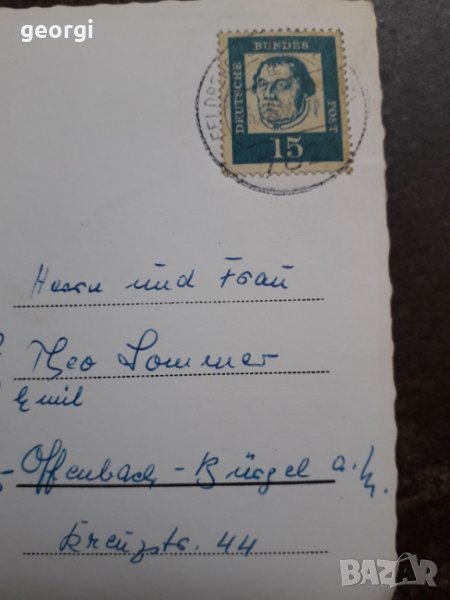 georgi
DEUTSCHE
BUNDES
POST
15
FELDB
Herrn und Frau
Theo Sommer
Emil
Offenbach-Bürgel a./M.
Kreuzstr. 44
BAZAR